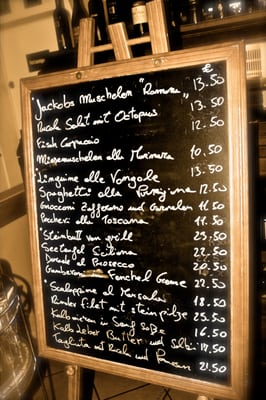 €
Jacobs Muscheln "Romana" 13.50
Rucola Salat mit Octopus 13.50
Fisch Carpaccio 12.50
Miesmuscheln alla Marinara 10.50
"Linguine alle Vongole 13.50
Spaghetti alla 12.50
Gnocconi Zafferano und Garnelen 11.50
Paccheri alla Toscana 11.50
"Steinbutt vom grill 25.50
Seeteufel Siciliana 22.50
Dorade al Prosecco 20.50
Gamberoni Fenchel Creme 22.50
"Scaloppine al Marsala 18.50
Rinder filet mit steinpilze 25.50
Kalbnieren in Senf Soße 16.50
Kalbsleber Butter und Salbei 17.50
Tagliata mit Rucola und Parmesan 21.50